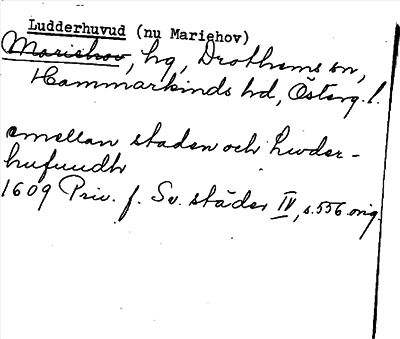 Ludderhuvud (nu Mariehov)
Mariehov, hg, Drothems sn,
Hammarkinds hd, Österg. l.
emellan staden och Luder-
hufuudh
1609 Priv. f. Sv. städer IV, s. 556 orig.